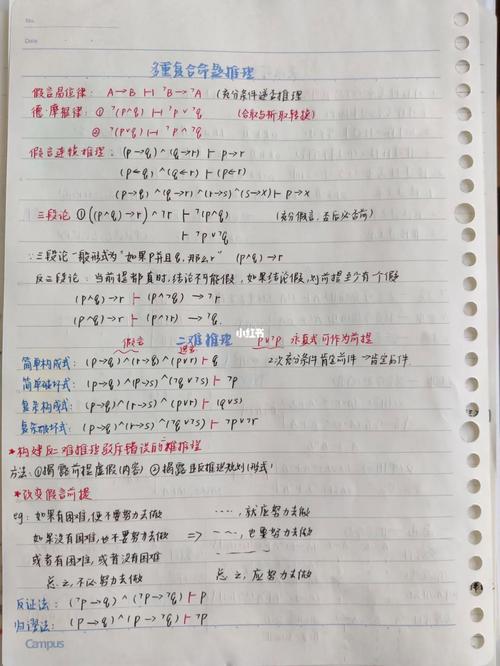 No.
Date
多重复合命题推理
假言易位律: A→B ⊢⊣ ¬B→¬A (充分条件逆否推理
德·摩根律: ① ¬(p∧q) ⊢⊣ ¬p∨¬q (合取与析取转换)
② ¬(p∨q) ⊢⊣ ¬p∧¬q
假言连锁推理: (p→q)∧(q→r) ⊢ p→r
(p←q)∧(q←r) ⊢ (p←r)
(p→q)∧(q→r)∧(r→s)∧(s→x) ⊢ p→x
三段论 ①((p∧q)→r)∧¬r ⊢ ¬(p∧q) (充分假言, 否后必否前)
⊢ ¬p∨¬q
∵三段论一般形式为"如果P并且q,那么r" (p∧q)→r
反三段论: 当前提都真时,结论不可能假, 如果结论假,则前提至少有一个假
(p∧q)→r ⊢ (p∧¬r)→¬q
小红书
假言 二难推理 p∨¬p 永真式可作为前提
选言
简单构成式: (p→q)∧(r→q)∧(p∨r) ⊢ q 2次充分条件肯定前件→肯定后件
简单破坏式: (p→q)∧(p→s)∧(¬q∨¬s) ⊢ ¬p
复杂构成式: (p→q)∧(r→s)∧(p∨r) ⊢ (q∨s)
复杂破坏式: (p→q)∧(r→s)∧(¬q∨¬s) ⊢ ¬p∨¬r
*构建反二难推理驳斥错误的二难推理
方法: ①揭露前提虚假(内容) ②揭露违反推理规则(形式)
*改变假言前提
eg: 如果有困难,便不要努力去做 ……, 就应努力去做
如果没有困难,也不要努力去做 ⇒ ……, 也要努力去做
或者有困难, 或者没有困难 ……
总之, 不必努力去做 总之, 应努力去做
反证法: (¬p→q)∧(¬p→¬q) ⊢ p
归谬法: (p→q)∧(p→¬q) ⊢ ¬p
Campus